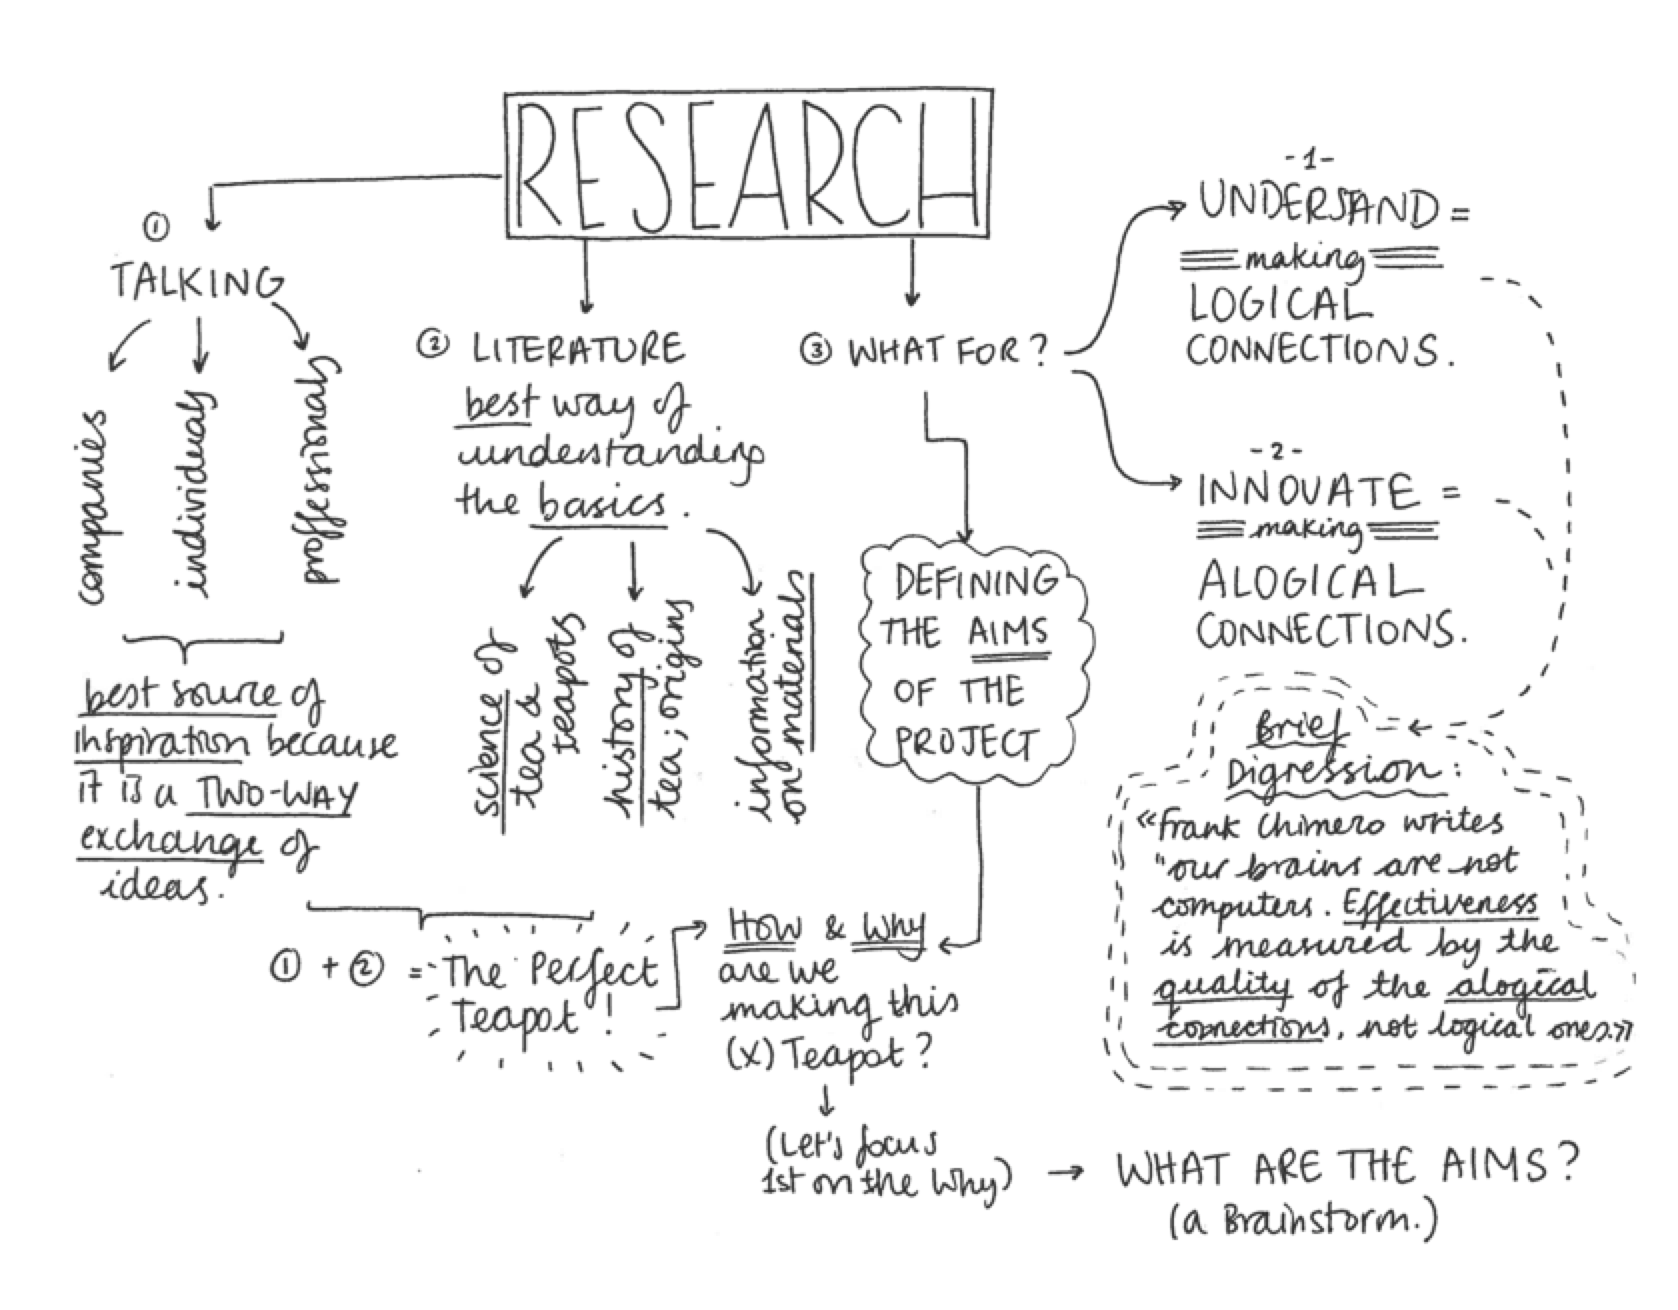 RESEARCH
①
TALKING
companies
individuals
proffessionals
best source of
inspiration because
it is a TWO-WAY
exchange of
ideas.
② LITERATURE
best way of
understanding
the basics.
science of
tea &
teapots
history of
tea; origins
information
on materials
① + ② = The Perfect
Teapot!
③ WHAT FOR?
-1-
UNDERSTAND =
making
LOGICAL
CONNECTIONS.
-2-
INNOVATE =
making
ALOGICAL
CONNECTIONS.
DEFINING
THE AIMS
OF THE
PROJECT
Brief
Digression:
«Frank Chimero writes
"our brains are not
computers. Effectiveness
is measured by the
quality of the alogical
connections, not logical ones.»
How & Why
are we
making this
(x) Teapot?
(Let's focus
1st on the Why)
WHAT ARE THE AIMS?
(a Brainstorm.)